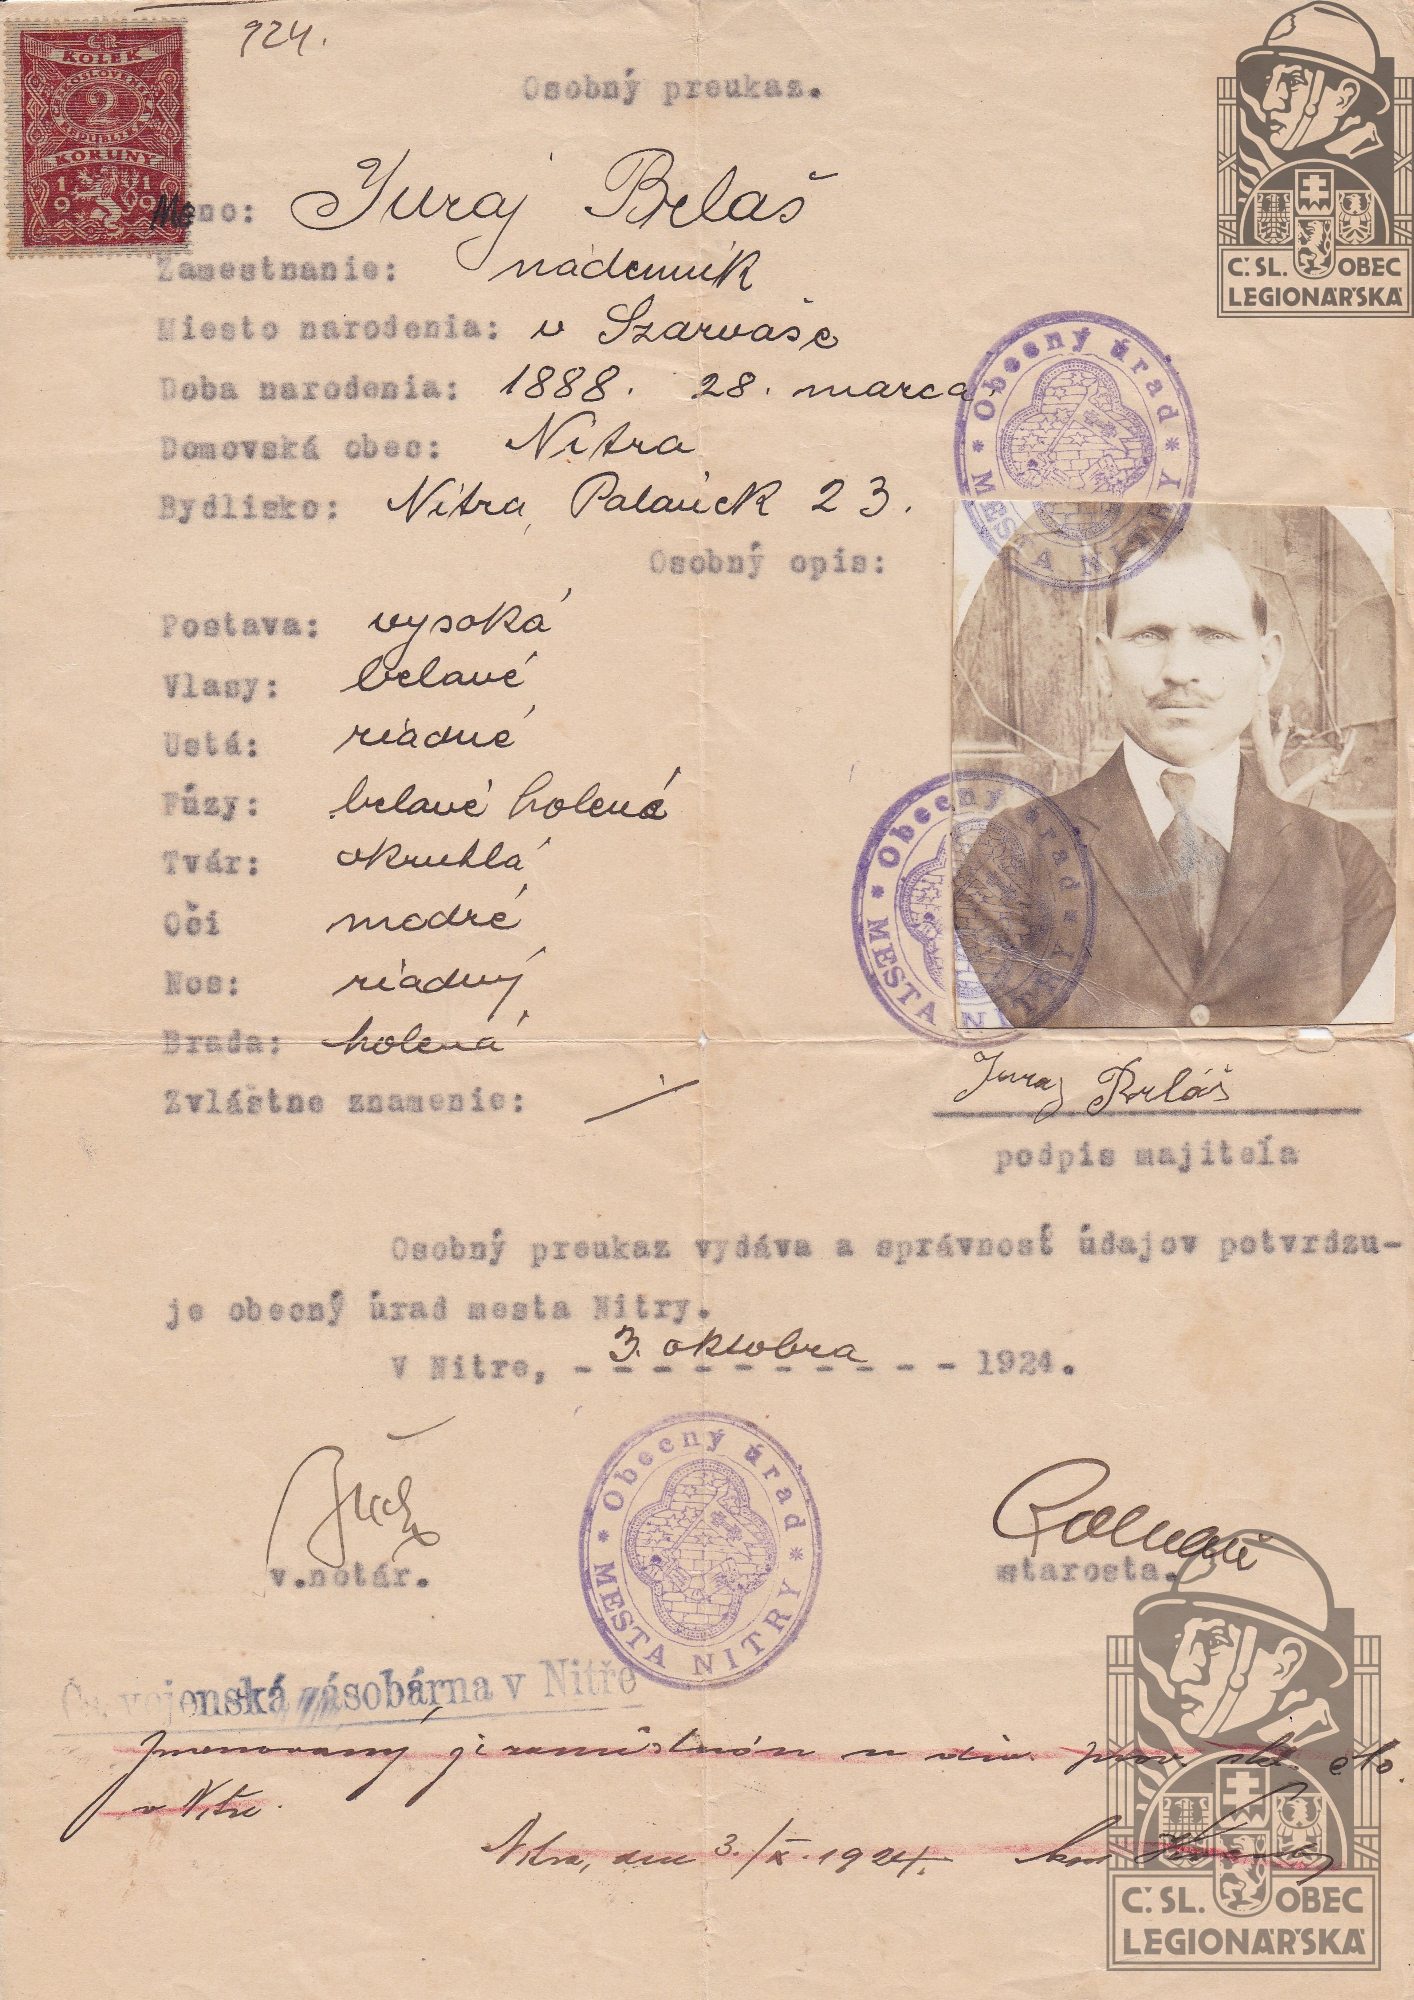 924.
ČR
KOLEK
2
KORUNY
1919
Osobný preukaz.
Meno: Juraj Belaš
Zamestnanie: nádenník
Miesto narodenia: v Szarvaše
Doba narodenia: 1888. 28. marca
Domovská obec: Nitra
Bydlisko: Nitra, Palarick 23.
Osobný opis:
Postava: vysoká
Vlasy: belavé
Ustá: riadné
Fúzy: belavé holené
Tvár: okruhlá
Oči modré
Nos: riadný
Brada: holená
Zvláštne znamenie: /
Juraj Belaš
podpis majiteľa
Osobný preukaz vydáva a správnosť údajov potvrdzu-
je obecný úrad mesta Nitry.
V Nitre, 3. oktobra 1924.
v.notár.
starosta.
Obecný úrad
* MESTA NITRY *
Obecný úrad
* MESTA NITRY *
Obecný úrad
* MESTA NITRY *
Čs. vojenská zásobárna v Nitře
Jmenovaný je
v Nitře.
Nitra, dne 3./X. 1924.
Č. SL. OBEC
LEGIONÁŘSKÁ
Č. SL. OBEC
LEGIONÁŘSKÁ